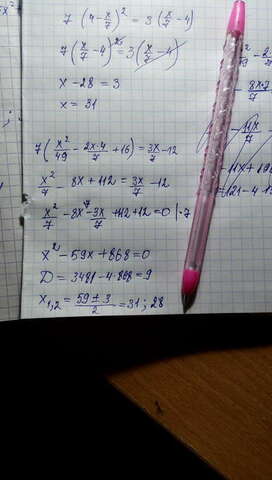 7 (4 - x/7)² = 3 (x/7 - 4)
7 (x/7 - 4)² = 3 (x/7 - 4)
x - 28 = 3
x = 31
7 (x²/49 - 2x·4/7 + 16) = 3x/7 - 12
x²/7 - 8x + 112 = 3x/7 - 12
x²/7 - 8x - 3x/7 + 112 + 12 = 0 | · 7
x² - 59x + 868 = 0
D = 3481 - 4·868 = 9
x₁,₂ = (59 ± 3)/2 = 31 ; 28